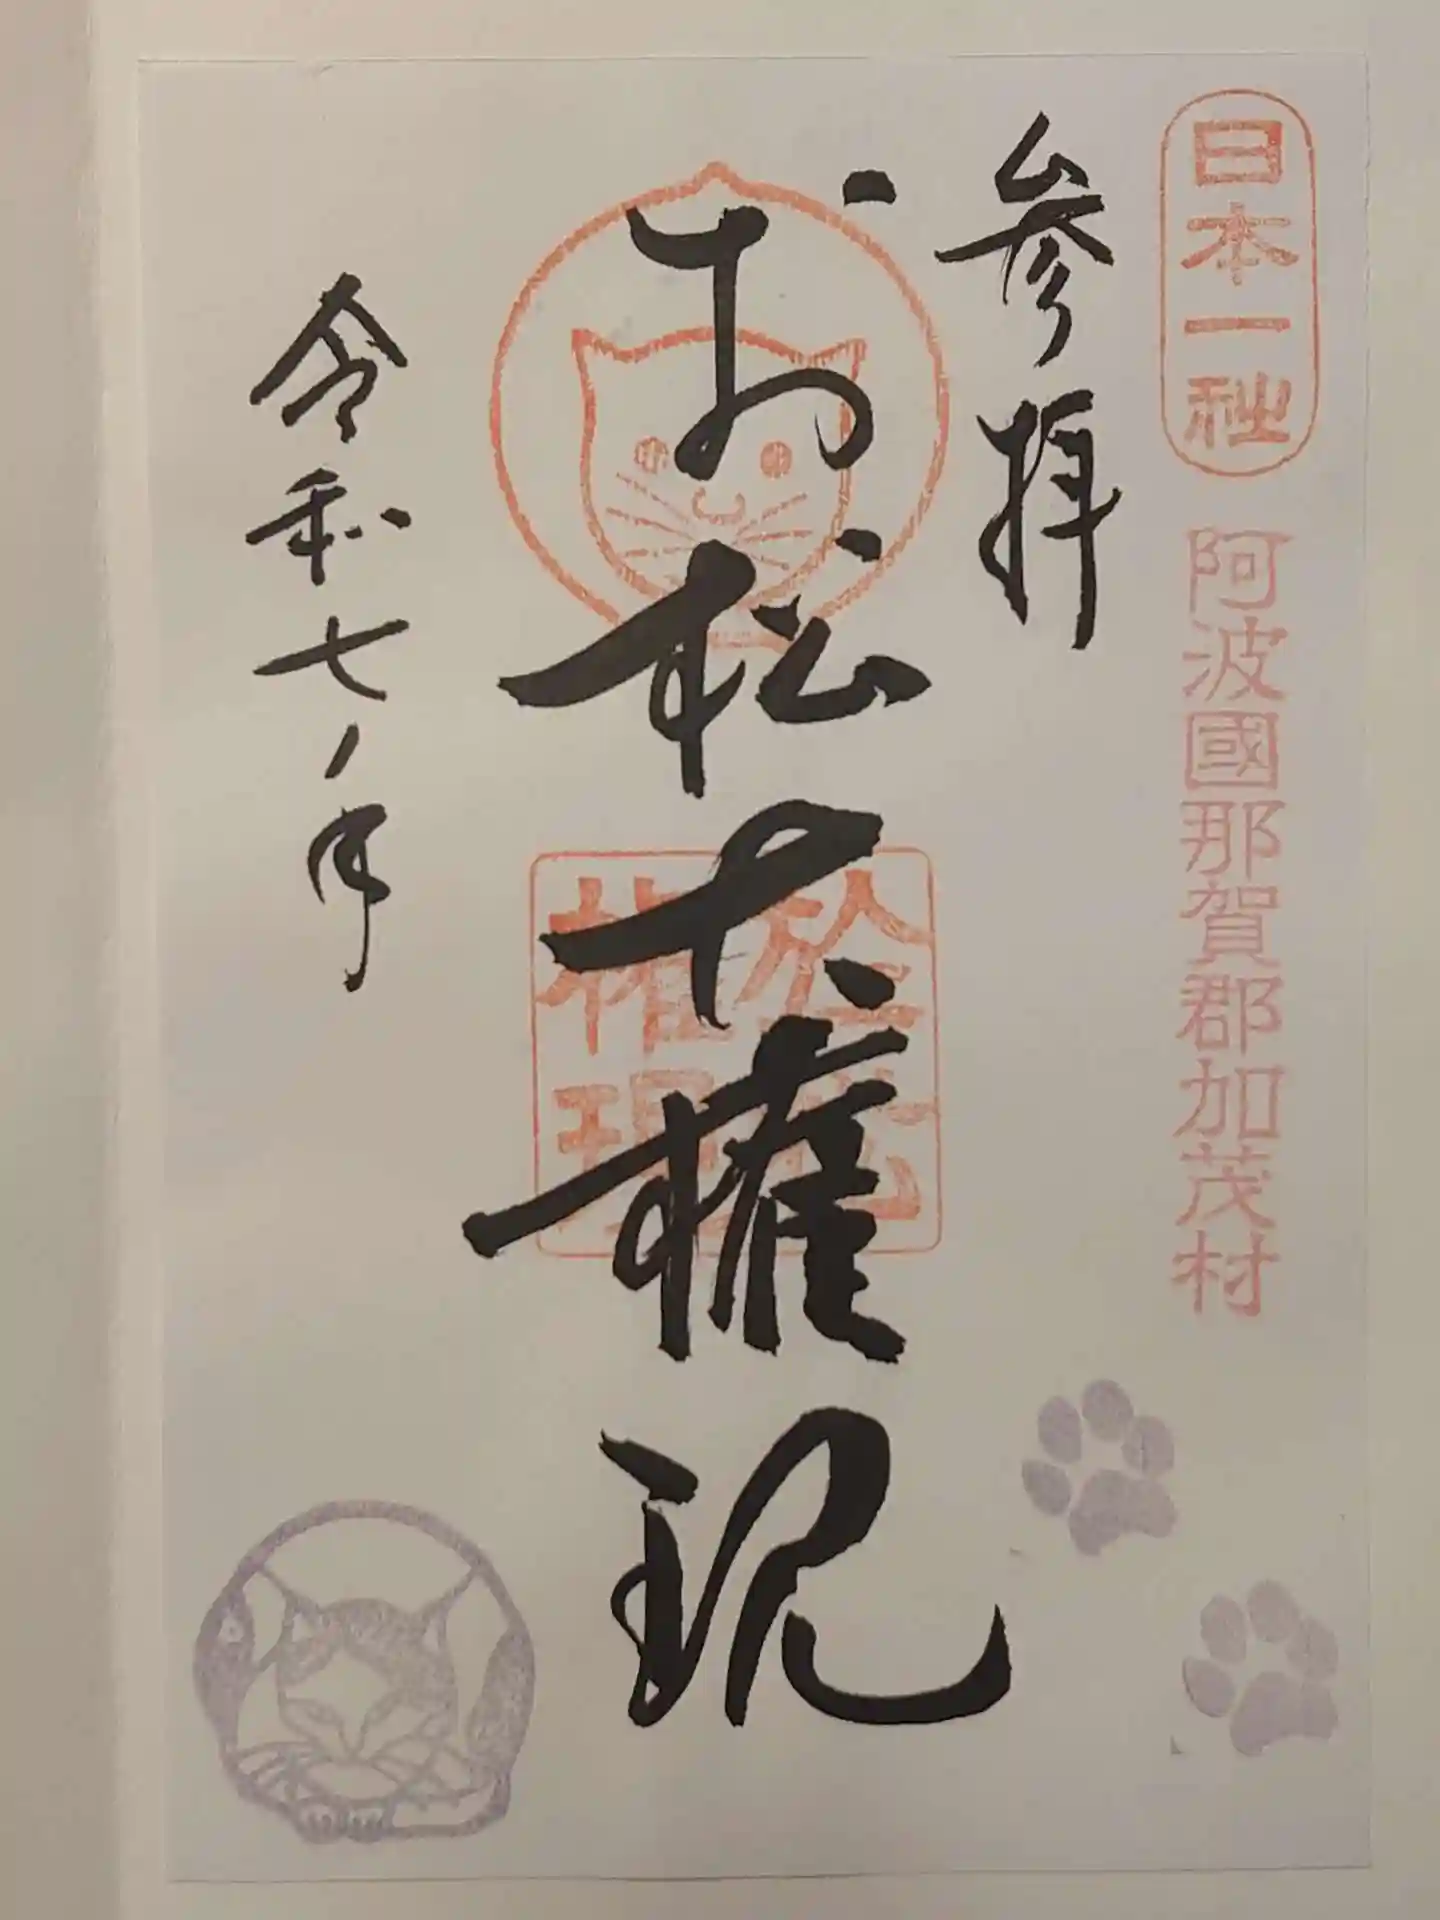 日本一社
阿波國那賀郡加茂村
参拝
お松大権現
於松
権現
令和七ノ年